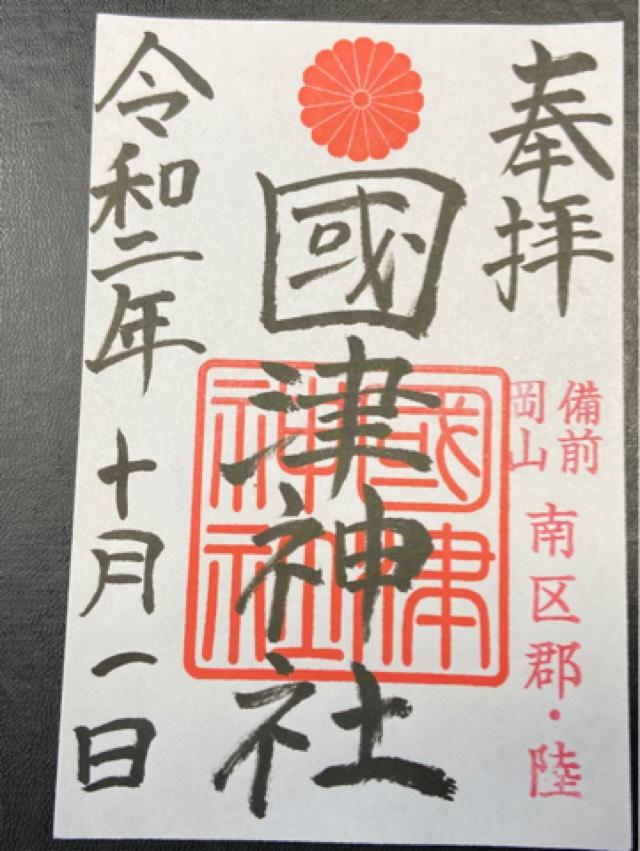 奉拝
備前
岡山
南区郡・陸
國津神社
國津
神社
令和二年十月一日